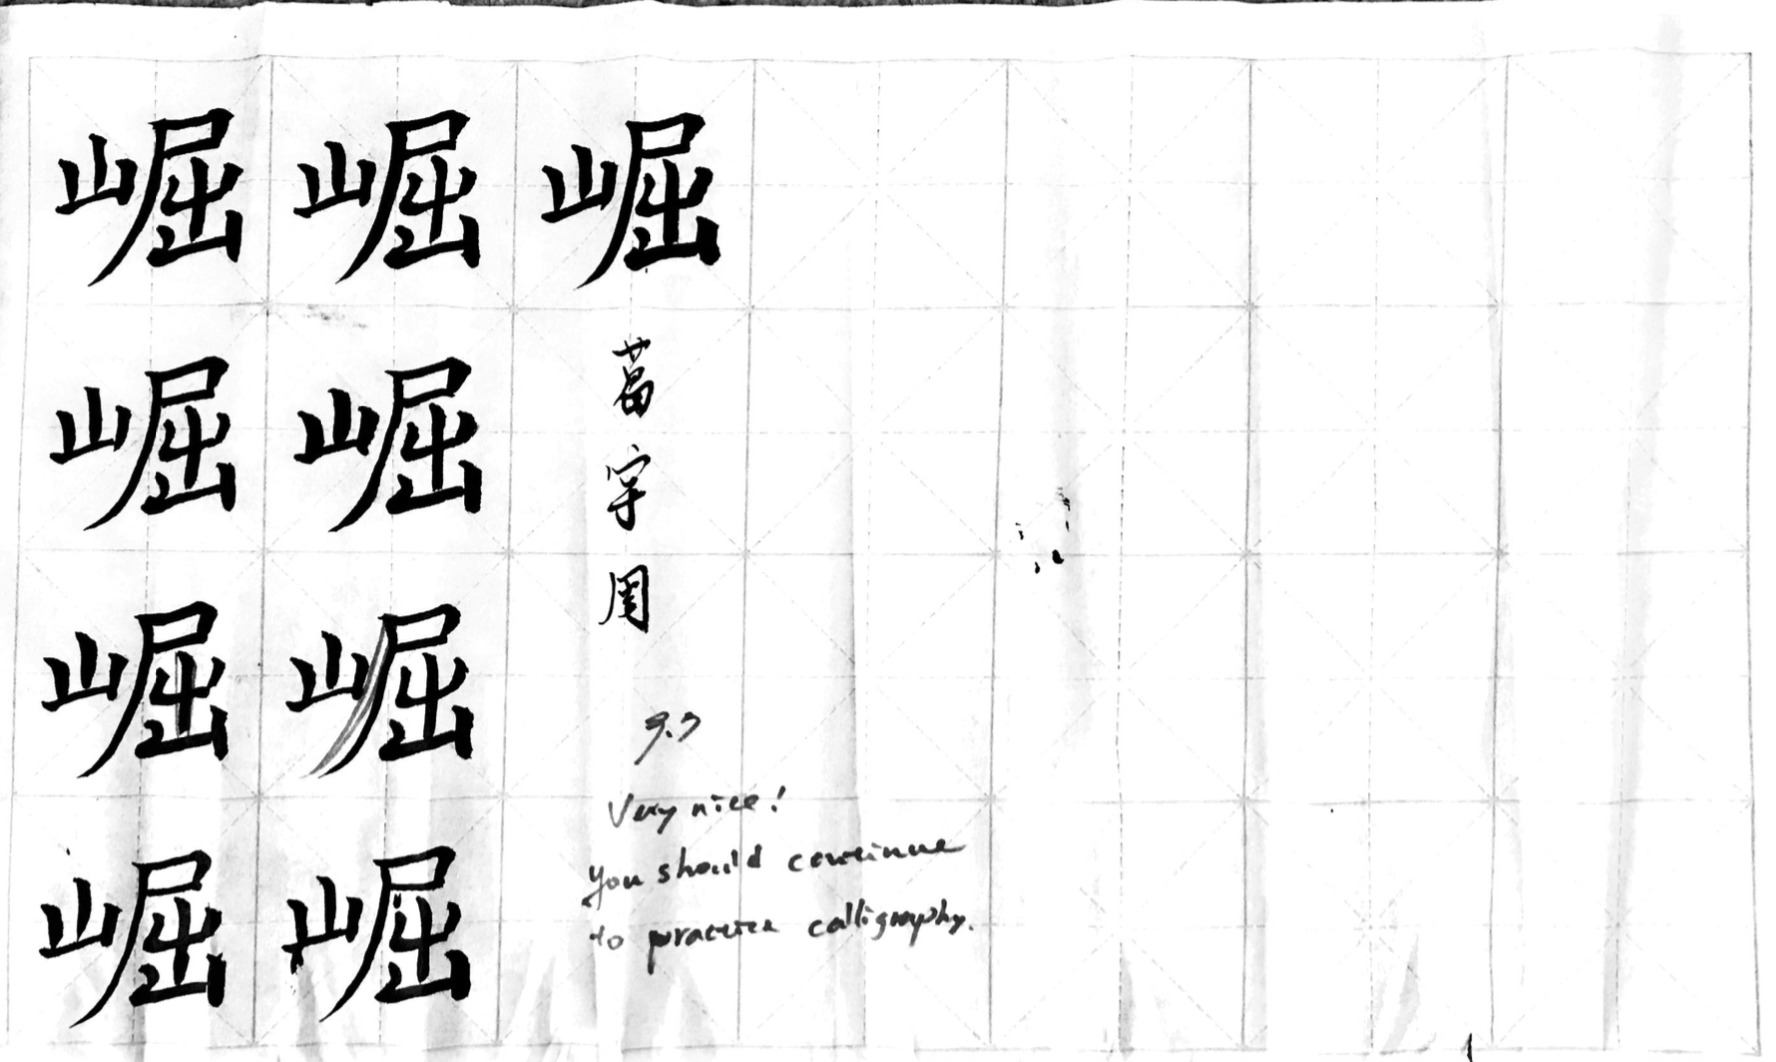 崛 崛 崛
崛 崛
崛 崛
崛 崛
葛宇周
9.7
Very nice!
You should continue
to practice calligraphy.